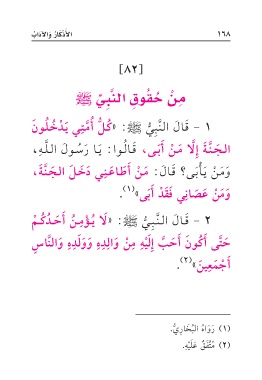 ١٦٨ الأَذْكَارُ وَالآدَابُ
[٨٢]
مِنْ حُقُوقِ النَّبِيِّ ﷺ
١ - قَالَ النَّبِيُّ ﷺ: «كُلُّ أُمَّتِي يَدْخُلُونَ
الجَنَّةَ إِلَّا مَنْ أَبَى، قَالُوا: يَا رَسُولَ اللَّهِ،
وَمَنْ يَأْبَى؟ قَالَ: مَنْ أَطَاعَنِي دَخَلَ الجَنَّةَ،
وَمَنْ عَصَانِي فَقَدْ أَبَى»(١).
٢ - قَالَ النَّبِيُّ ﷺ: «لَا يُؤْمِنُ أَحَدُكُمْ
حَتَّى أَكُونَ أَحَبَّ إِلَيْهِ مِنْ وَالِدِهِ وَوَلَدِهِ وَالنَّاسِ
أَجْمَعِينَ»(٢).
(١) رَوَاهُ البُخَارِيُّ.
(٢) مُتَّفَقٌ عَلَيْهِ.